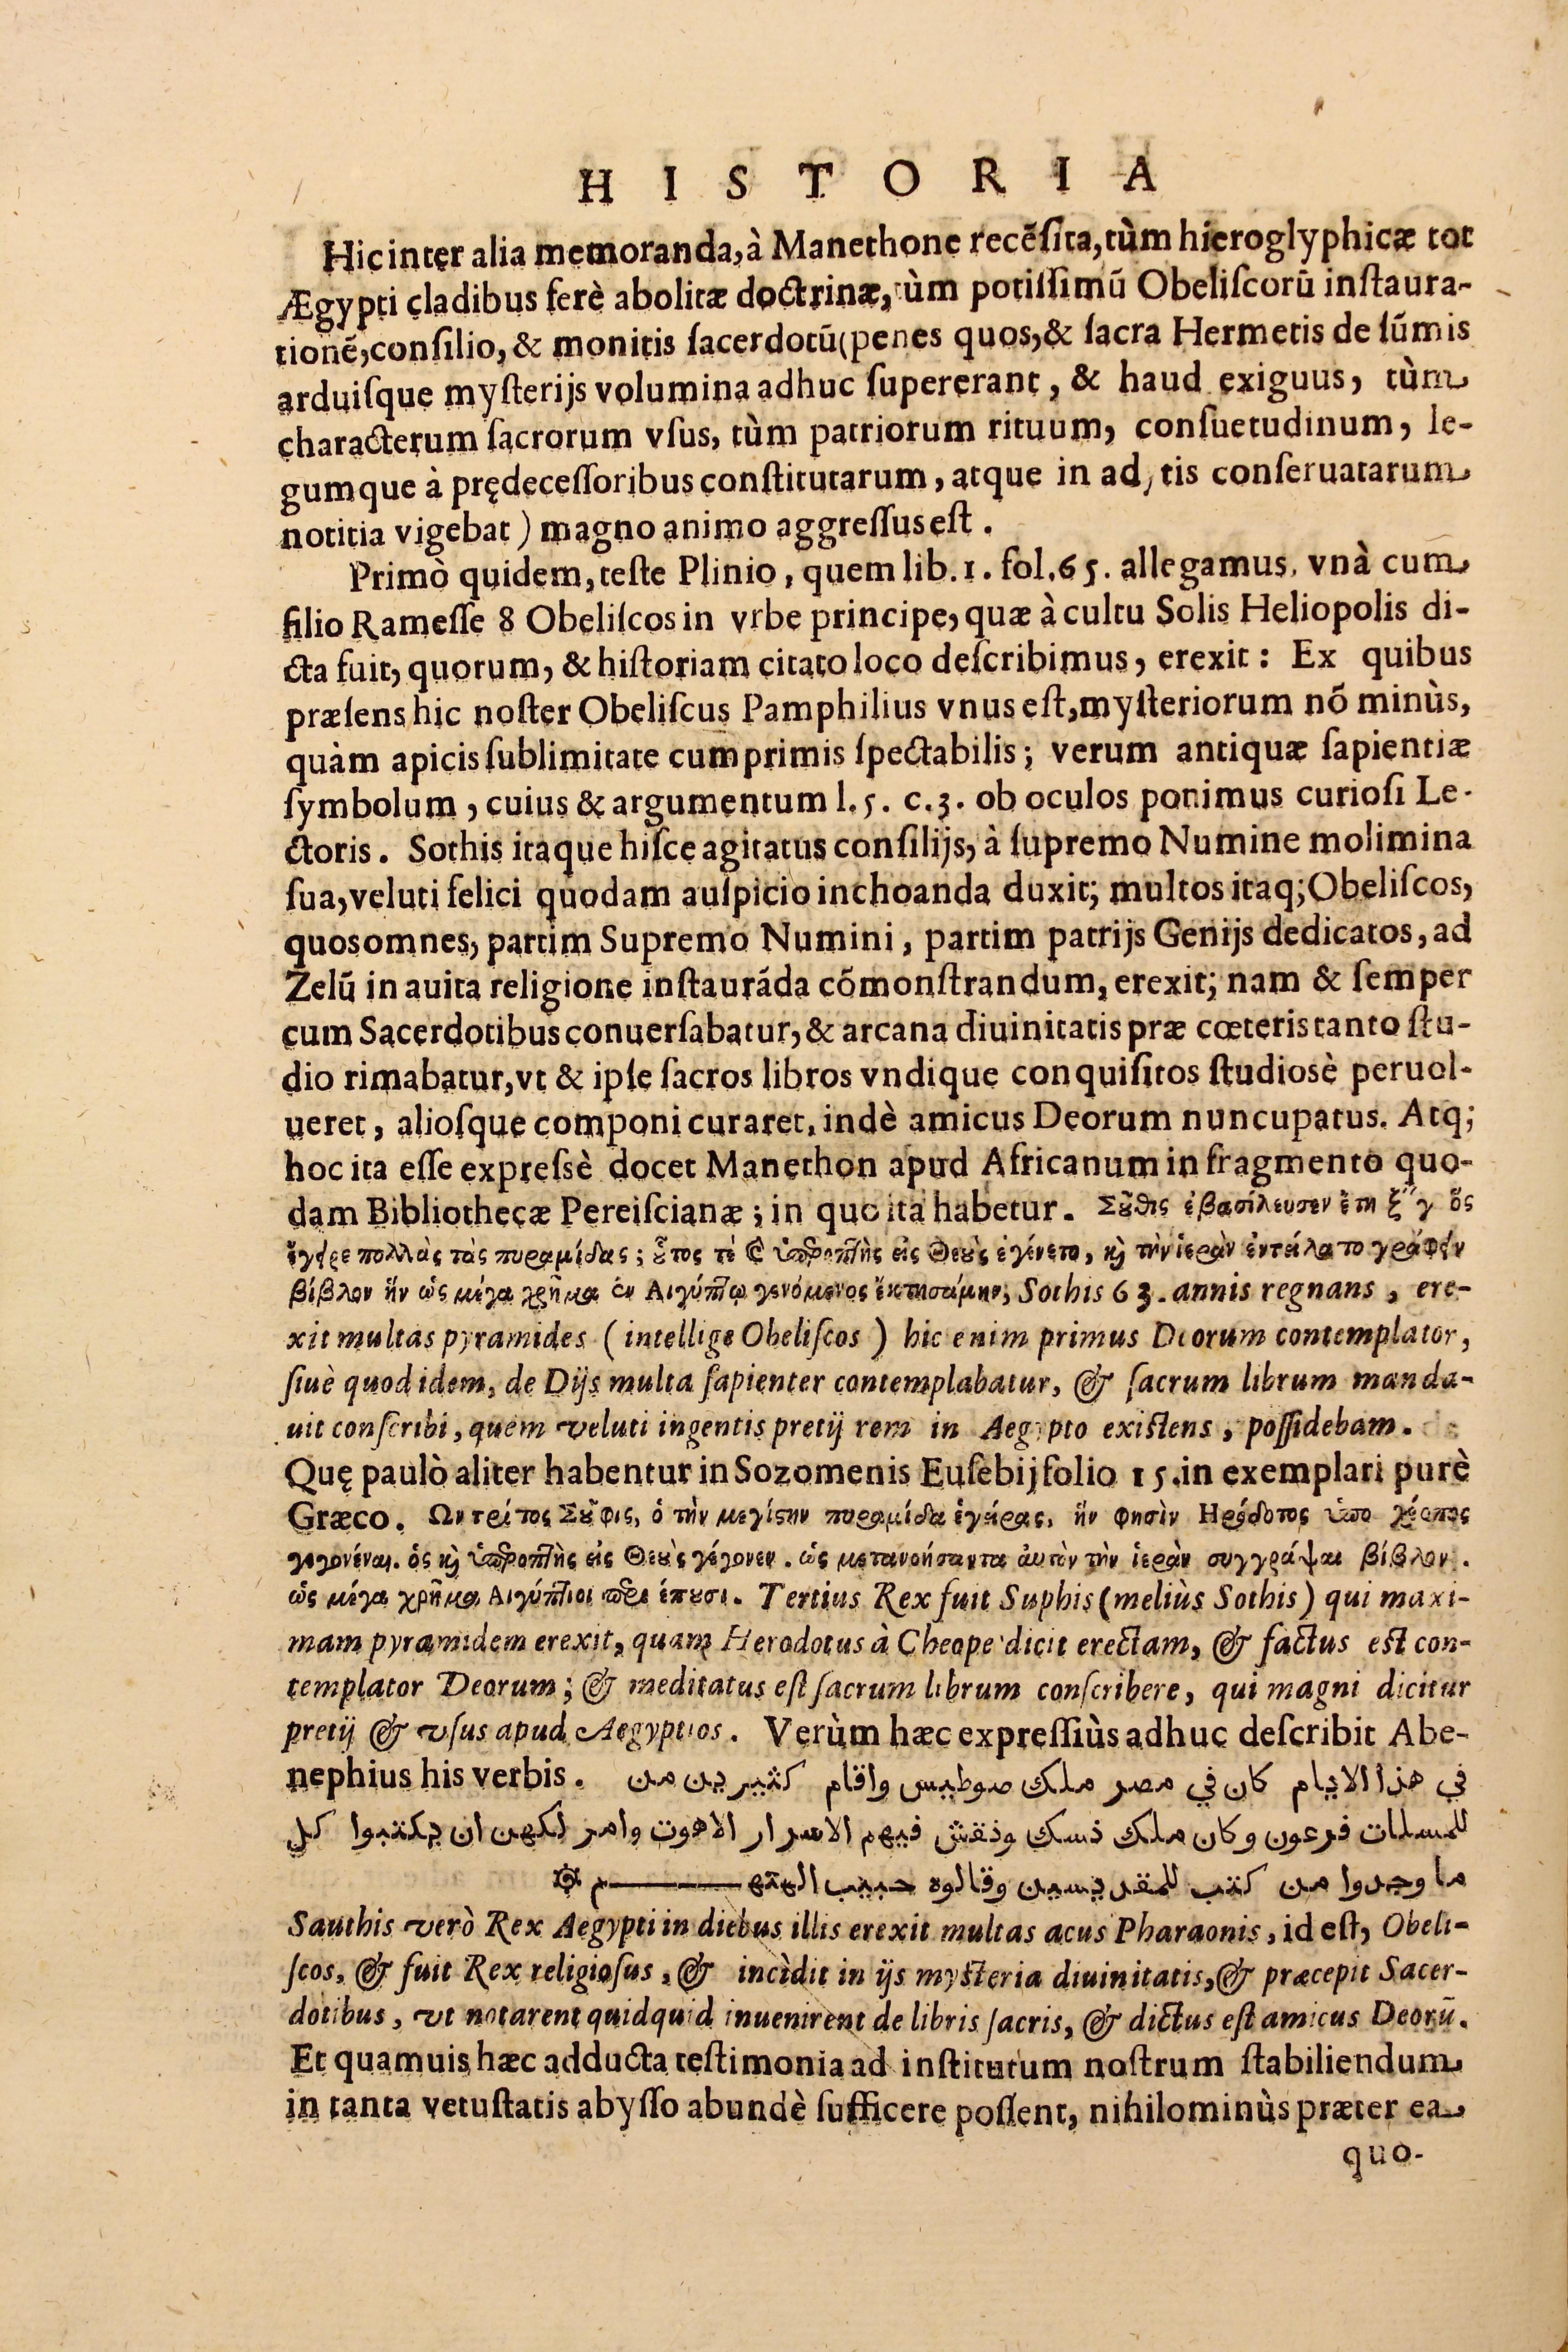 HISTORIA
Hic inter alia memoranda, à Manethone recẽsita, tùm hieroglyphicæ tot
Ægypti cladibus ferè abolitæ doctrinæ, tùm potissimũ Obeliscorũ instaura-
tionẽ, consilio, & monitis sacerdotũ (penes quos, & sacra Hermetis de sũmis
arduisque mysterijs volumina adhuc supererant, & haud exiguus, tùm
characterum sacrorum vsus, tùm patriorum rituum, consuetudinum, le-
gumque à prędecessoribus constitutarum, atque in adytis conseruatarum
notitia vigebat) magno animo aggressus est.
Primò quidem, teste Plinio, quem lib. 1. fol. 65. allegamus, vnà cum
filio Ramesse 8 Obeliscos in vrbe principe, quæ à cultu Solis Heliopolis di-
cta fuit, quorum, & historiam citato loco describimus, erexit: Ex quibus
præsens hic noster Obeliscus Pamphilius vnus est, mysteriorum nõ minùs,
quàm apicis sublimitate cumprimis spectabilis; verum antiquæ sapientiæ
symbolum, cuius & argumentum l. 5. c. 3. ob oculos ponimus curiosi Le-
ctoris. Sothis itaque hisce agitatus consilijs, à supremo Numine molimina
sua, veluti felici quodam auspicio inchoanda duxit; multos itaq; Obeliscos,
quos omnes, partim Supremo Numini, partim patrijs Genijs dedicatos, ad
Zelũ in auita religione instaurãda cõmonstrandum, erexit; nam & semper
cum Sacerdotibus conuersabatur, & arcana diuinitatis præ cœteris tanto stu-
dio rimabatur, vt & ipse sacros libros vndique conquisitos studiosè peruol-
ueret, aliosque componi curaret, indè amicus Deorum nuncupatus. Atq;
hoc ita esse expressè docet Manethon apud Africanum in fragmento quo-
dam Bibliothecæ Pereiscianæ; in quo ita habetur. Σȣ̃θις ἐβασίλευσεν ἔτη ξ γ ὃς
ἤγειρε πολλὰς τὰς πυραμίδας; ȣ̃τος τὲ ὑπερόπτης εἰς Θεȣ̀ς ἐγένετο, κὶ τὴν ἱερὰν ἐντείλατο γράφειν
βίβλον ἣν ὡς μέγα χρῆμα ἐν Αἰγύπτῳ γενόμενος ἐκτησάμην, Sothis 63. annis regnans, ere-
xit multas pyramides (intellige Obeliscos) hic enim primus Deorum contemplator,
siuè quod idem, de Dijs multa sapienter contemplabatur, & sacrum librum manda-
uit conscribi, quem veluti ingentis pretij rem in Aegypto existens, possidebam.
Quę paulò aliter habentur in Sozomenis Eusebij folio 15. in exemplari purè
Græco. Ων τρίτος Σȣ̃φις, ὁ τὴν μεγίστην πυραμίδα ἐγείρας, ἥν φησὶν Ηρόδοτος ὑπο χέοπος
γεγονέναι. ὁς κὶ ὑπερόπτης εἰς Θεȣ̀ς γέγονεν. ὡς μετανοήσαντα ἀυτὸν τὴν ἱερὰν συγγράψαι βίβλον.
ὡς μέγα χρῆμα Αἰγύπτιοι περιέπȣσι. Tertius Rex fuit Suphis (meliùs Sothis) qui maxi-
mam pyramidem erexit, quam Herodotus à Cheope dicit erectam, & factus est con-
templator Deorum; & meditatus est sacrum librum conscribere, qui magni dicitur
pretij & vsus apud Aegyptios. Verùm hæc expressiùs adhuc describit Abe-
nephius his verbis. في هذا الايام كان في مصر ملك صوطيس واقام كثيرين من
للمسلات فرعون وكان ملك نسك ونقش فيهم الاسرار الاهوت وامر لكهن ان يكتبوا كل
ما وجدوا من كتب للمقديسين وقالوه حبيب الهتهـــــم
Sauthis verò Rex Aegypti in diebus illis erexit multas acus Pharaonis, id est, Obeli-
scos, & fuit Rex religiosus, & incìdit in ijs mysteria diuinitatis, & præcepit Sacer-
dotibus, vt notarent quidquid inuenirent de libris sacris, & dictus est amicus Deorũ.
Et quamuis hæc adducta testimonia ad institutum nostrum stabiliendum
in tanta vetustatis abysso abundè sufficere possent, nihilominùs præter ea
quo-